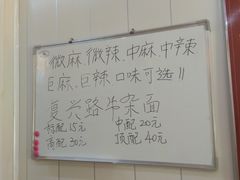 微麻、微辣、中麻、中辣
巨麻、巨辣 口味可选！！
复兴路牛杂面
标配15元 中配20元
高配30元 顶配40元